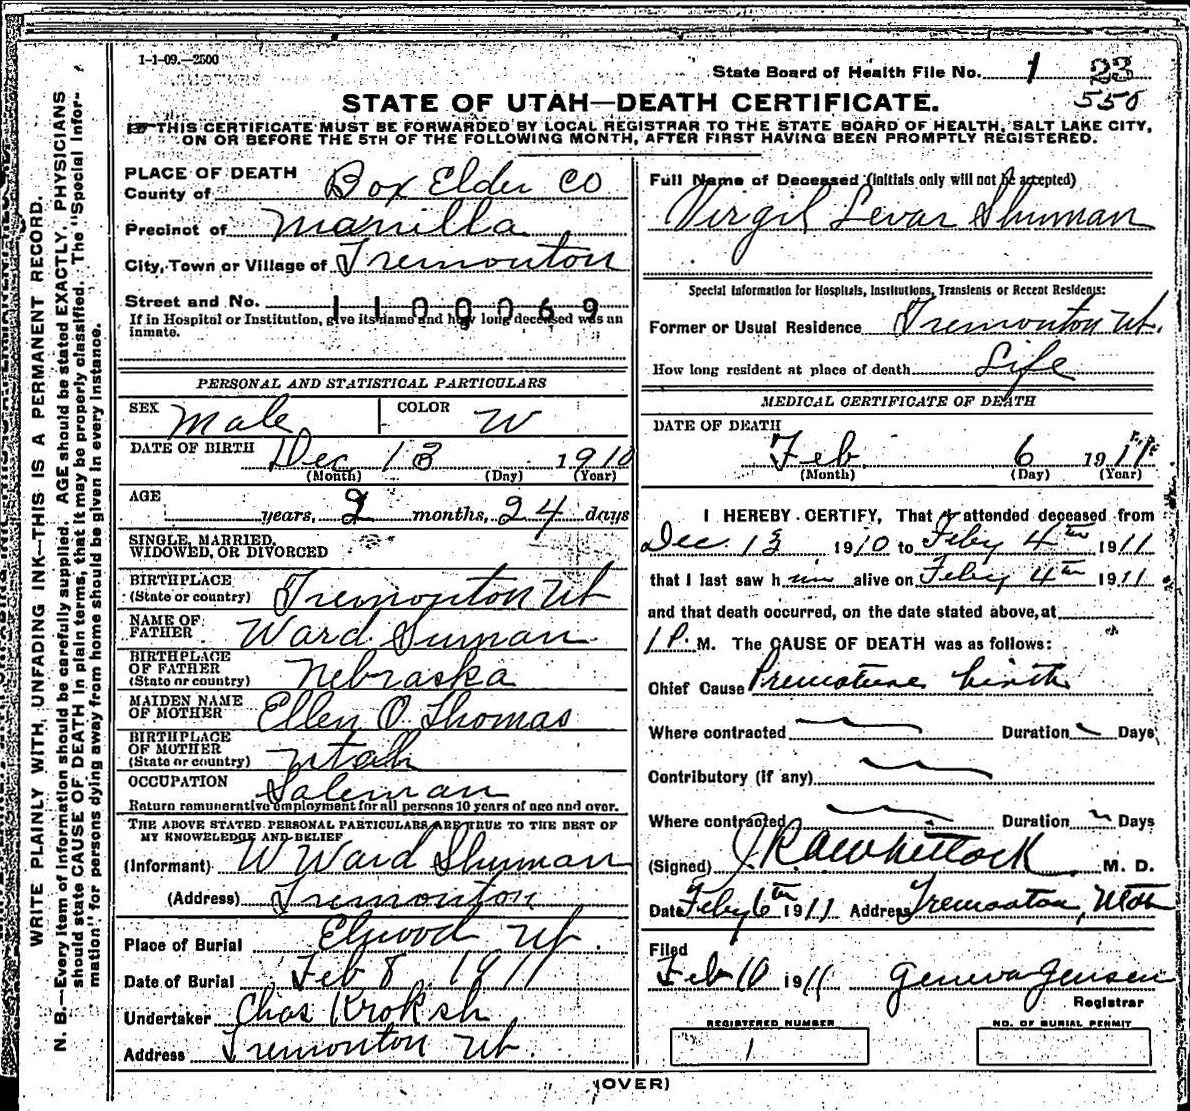 1-1-09.—2500
State Board of Health File No. 1 23
550
STATE OF UTAH—DEATH CERTIFICATE.
THIS CERTIFICATE MUST BE FORWARDED BY LOCAL REGISTRAR TO THE STATE BOARD OF HEALTH, SALT LAKE CITY,
ON OR BEFORE THE 5TH OF THE FOLLOWING MONTH, AFTER FIRST HAVING BEEN PROMPTLY REGISTERED.
WRITE PLAINLY WITH UNFADING INK—THIS IS A PERMANENT RECORD.
N. B.—Every item of information should be carefully supplied. AGE should be stated EXACTLY. PHYSICIANS
should state CAUSE OF DEATH in plain terms, that it may be properly classified. The "Special Infor-
mation" for persons dying away from home should be given in every instance.
PLACE OF DEATH
County of Box Elder Co
Precinct of Manilla
City, Town or Village of Tremonton
Street and No. 1100069
If in Hospital or Institution, give its name and how long deceased was an
inmate.
PERSONAL AND STATISTICAL PARTICULARS
SEX Male COLOR W
DATE OF BIRTH
Dec 13 1910
(Month) (Day) (Year)
AGE
years, 2 months, 24 days
SINGLE, MARRIED,
WIDOWED, OR DIVORCED
BIRTHPLACE
(State or country) Tremonton Ut
NAME OF
FATHER Ward Suman
BIRTHPLACE
OF FATHER
(State or country) Nebraska
MAIDEN NAME
OF MOTHER Ellen O. Thomas
BIRTHPLACE
OF MOTHER
(State or country) Utah
OCCUPATION Saleman
Return remunerative employment for all persons 10 years of age and over.
THE ABOVE STATED PERSONAL PARTICULARS ARE TRUE TO THE BEST OF
MY KNOWLEDGE AND BELIEF
(Informant) W Ward Shuman
(Address) Tremonton
Place of Burial Elwood Ut.
Date of Burial Feb 8, 1911
Undertaker Chas Kroksh
Address Tremonton Ut.
Full Name of Deceased (initials only will not be accepted)
Virgil Levar Shuman
Special Information for Hospitals, Institutions, Transients or Recent Residents:
Former or Usual Residence Tremonton Ut.
How long resident at place of death Life
MEDICAL CERTIFICATE OF DEATH
DATE OF DEATH
Feb. 6 1911
(Month) (Day) (Year)
I HEREBY CERTIFY, That I attended deceased from
Dec. 13 1910 to Feby 4th 1911
that I last saw him alive on Feby 4th 1911
and that death occurred, on the date stated above, at
1 P. M. The CAUSE OF DEATH was as follows:
Chief Cause Premature birth
Where contracted Duration Days
Contributory (if any)
Where contracted Duration Days
(Signed) Whitlock M. D.
Date Feby 6th 1911 Address Tremonton, Utah
Filed
Feb 10 1911 Geneva Jensen
Registrar
REGISTERED NUMBER
1
NO. OF BURIAL PERMIT
(OVER)